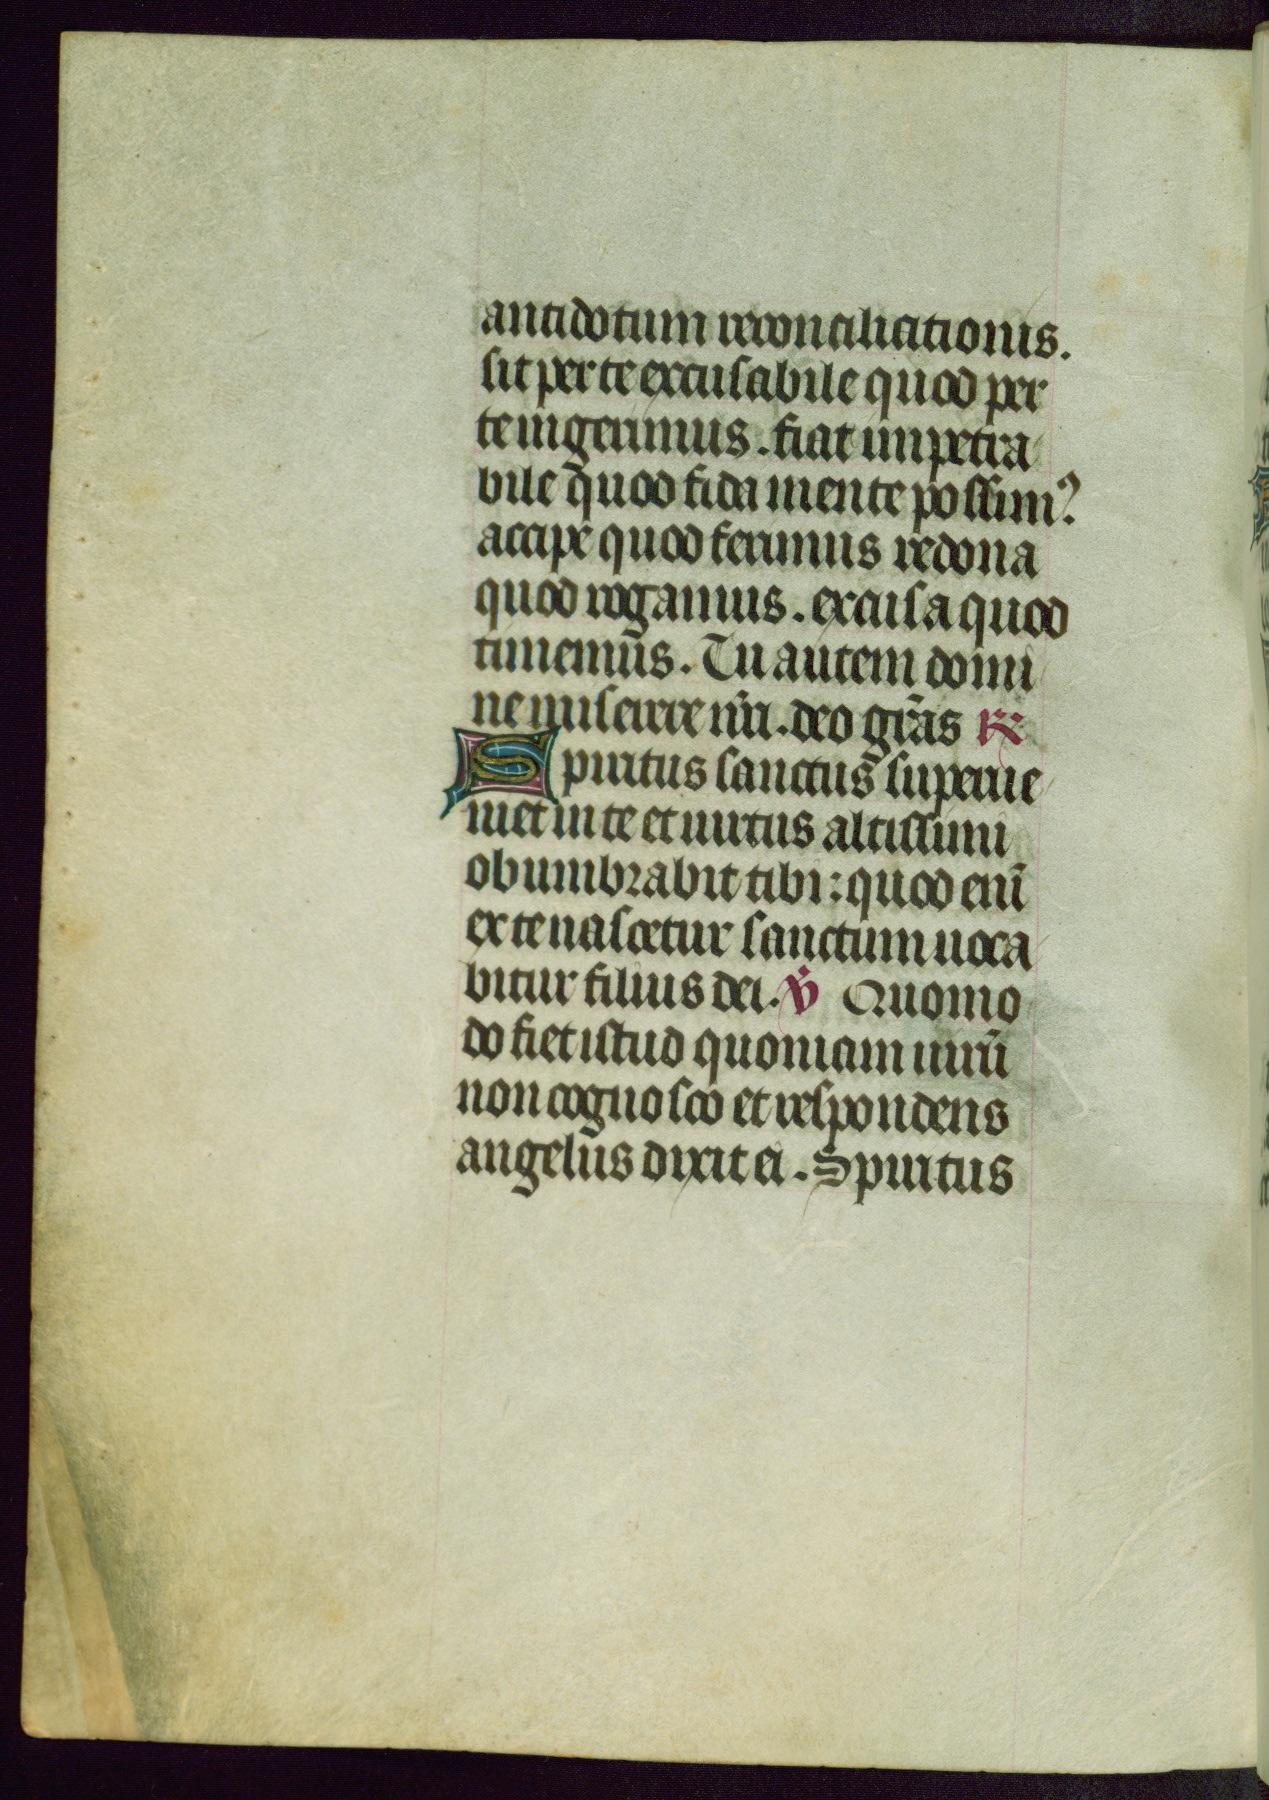 antidotum reconciliationis.
sit per te excusabile quod per
te ingerimus. fiat impetra
bile quod fida mente possim?
accipe quod ferimus redona
quod rogamus. excusa quod
timemus. Tu autem domi
ne miserere nr̄i. deo gr̄as R
Spiritus sanctus superue
niet in te et uirtus altissimi
obumbrabit tibi: quod eni̅
ex te nascetur sanctum uoca
bitur filius dei. V̇ Quomo
do fiet istud quoniam uiru̅
non cognosco et respondens
angelus dixit ei. Spiritus